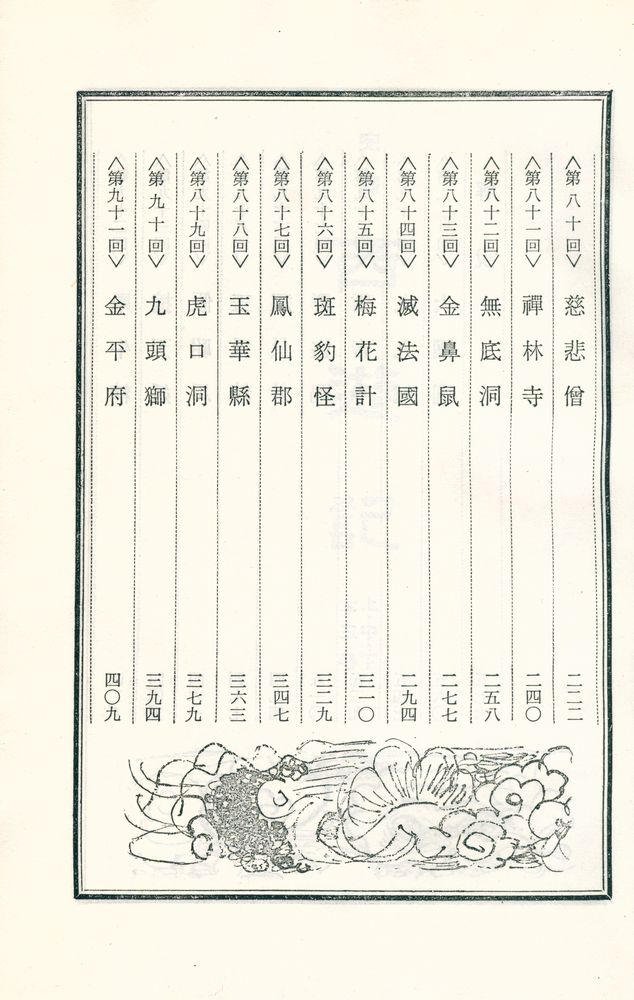 〈第八十回〉 慈悲僧 二二二
〈第八十一回〉 禪林寺 二四〇
〈第八十二回〉 無底洞 二五八
〈第八十三回〉 金鼻鼠 二七七
〈第八十四回〉 滅法國 二九四
〈第八十五回〉 梅花計 三一〇
〈第八十六回〉 斑豹怪 三二九
〈第八十七回〉 鳳仙郡 三四七
〈第八十八回〉 玉華縣 三六三
〈第八十九回〉 虎口洞 三七九
〈第九十回〉 九頭獅 三九四
〈第九十一回〉 金平府 四〇九